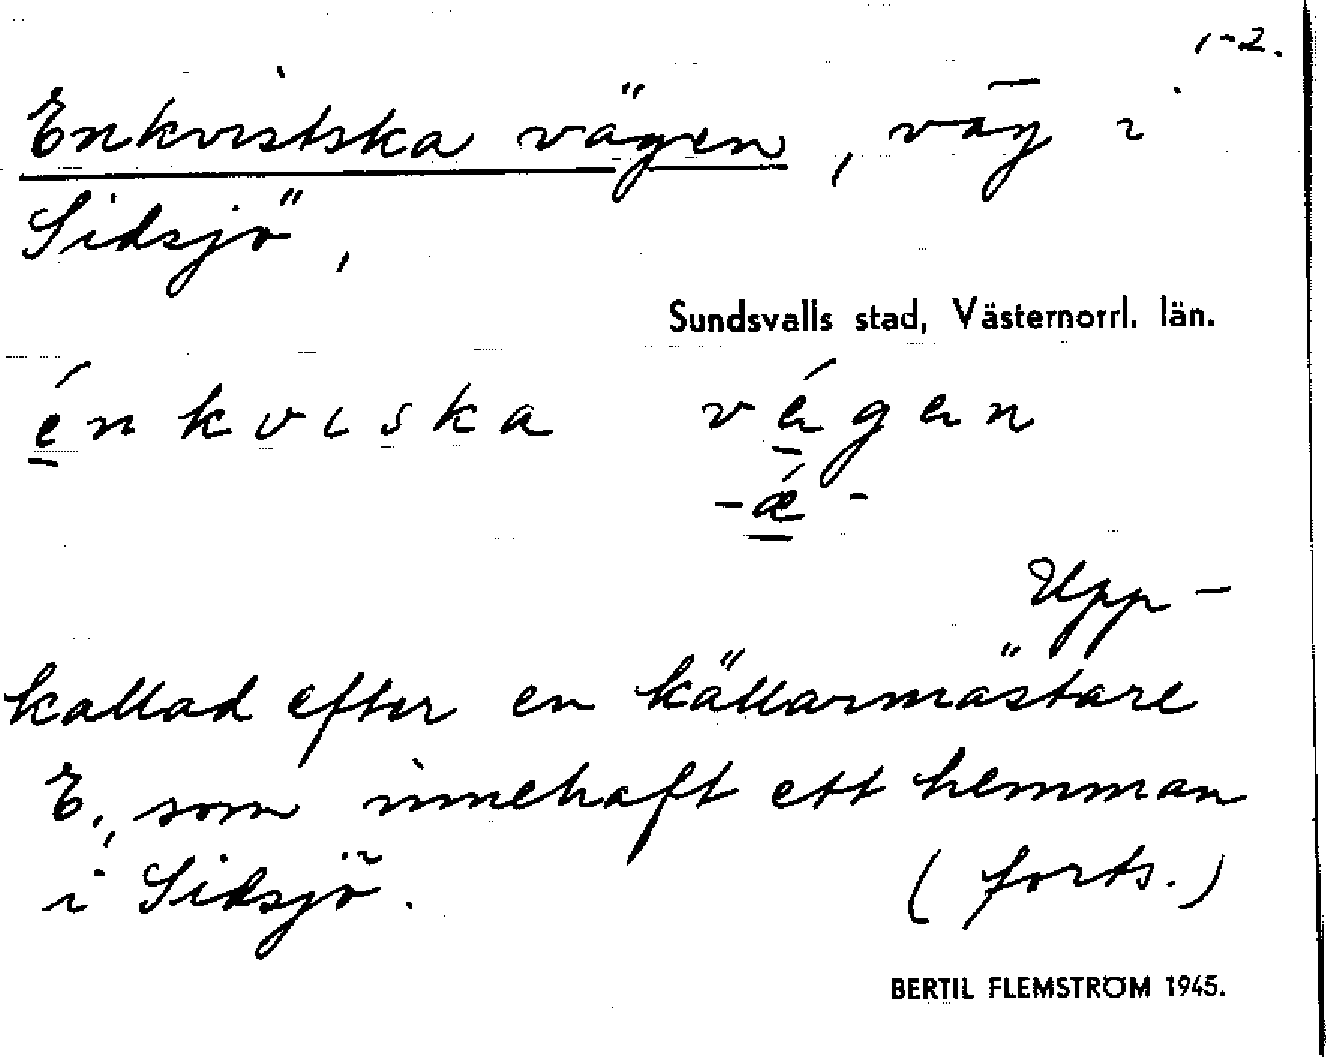 1-2.
Enkvistska vägen, väg i
Sidsjö,
Sundsvalls stad, Västernorrl. län.
énkviska vägen
-ǽ-
Upp-
kallad efter en källarmästare
E., som innehaft ett hemman
i Sidsjö. (forts.)
BERTIL FLEMSTRÖM 1945.